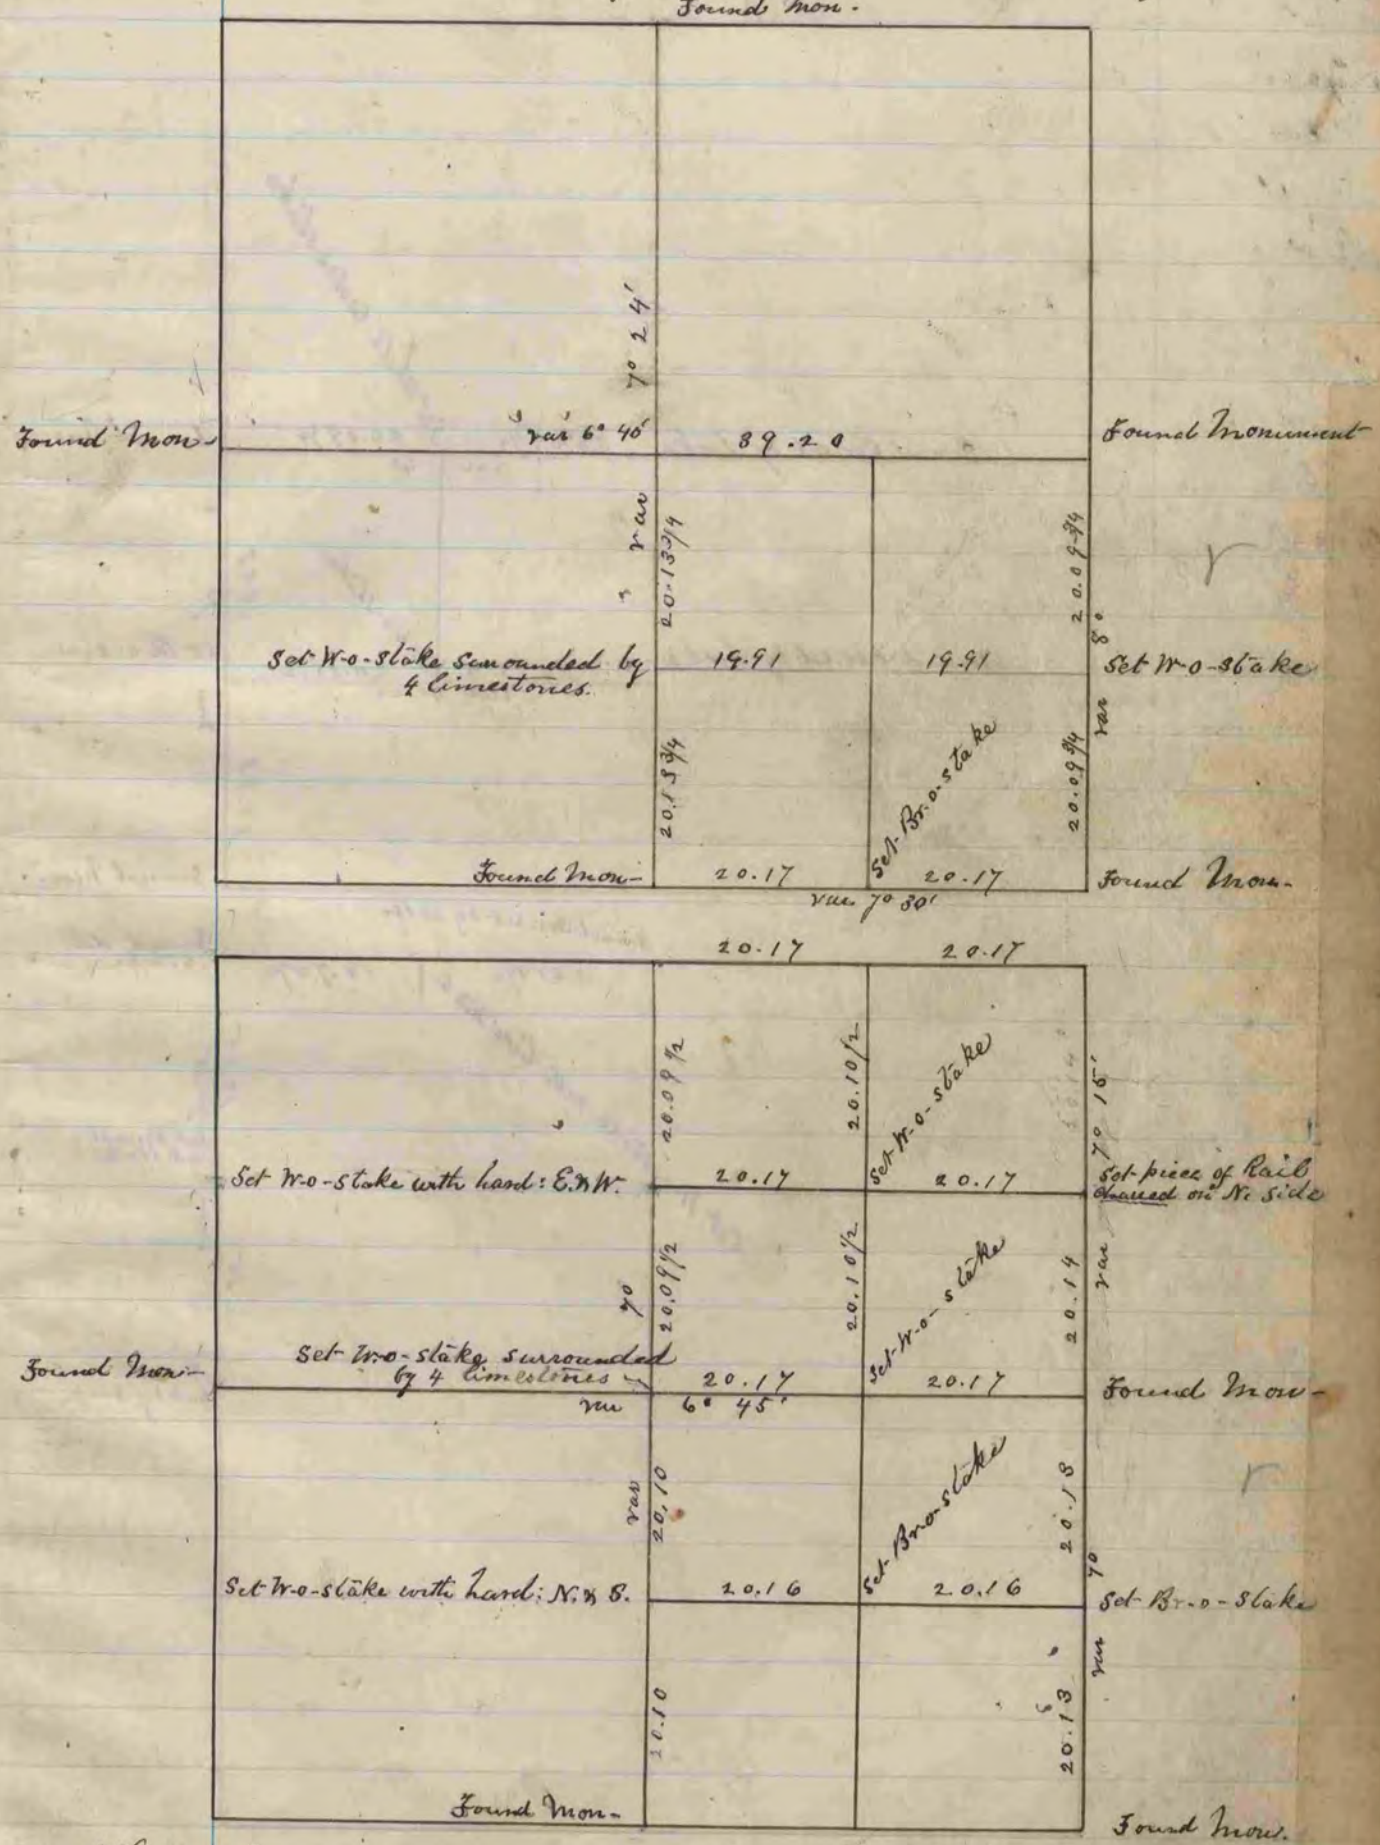 Found Mon.
7° 24'
Found Mon.
var 6° 40'
39.20
Found Monument
var
20.13 3/4
20.09 3/4
Set W-o-stake surrounded by
4 limestones.
19.91
19.91
8°
Set W-o-stake
var
20.13 3/4
Set Br-o-stake
20.09 3/4
Found Mon.
20.17
20.17
Found Mon.
var 7° 30'
20.17
20.17
20.09 1/2
20.10 1/2
Set W-o-stake
7° 15'
Set W-o-stake with hard: E. & W.
20.17
20.17
Set piece of Rail
on N. side
var
7°
20.09 1/2
20.10 1/2
Set W-o-stake
20.14
Set W-o-stake surrounded
by 4 limestones
Found Mon.
20.17
20.17
Found Mon.
var 6° 45'
var
20.10
Set Br-o-stake
20.13
7°
Set W-o-stake with hard: N. & S.
20.16
20.16
Set Br-o-stake
var
20.10
20.13
Found Mon.
Found Mon.